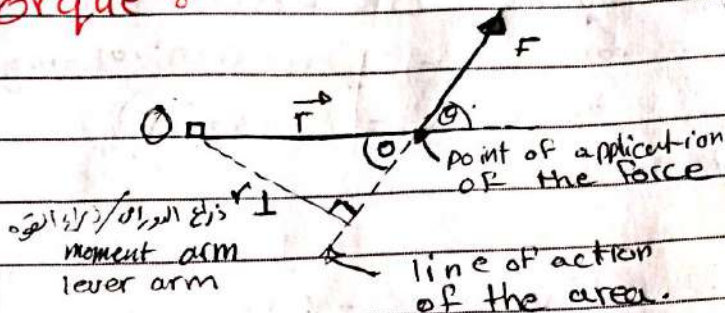 orque :
F
r
θ
O
θ
point of application
of the force
r⊥
ذراع الدوران / ذراع القوه
moment arm
lever arm
line of action
of the area.